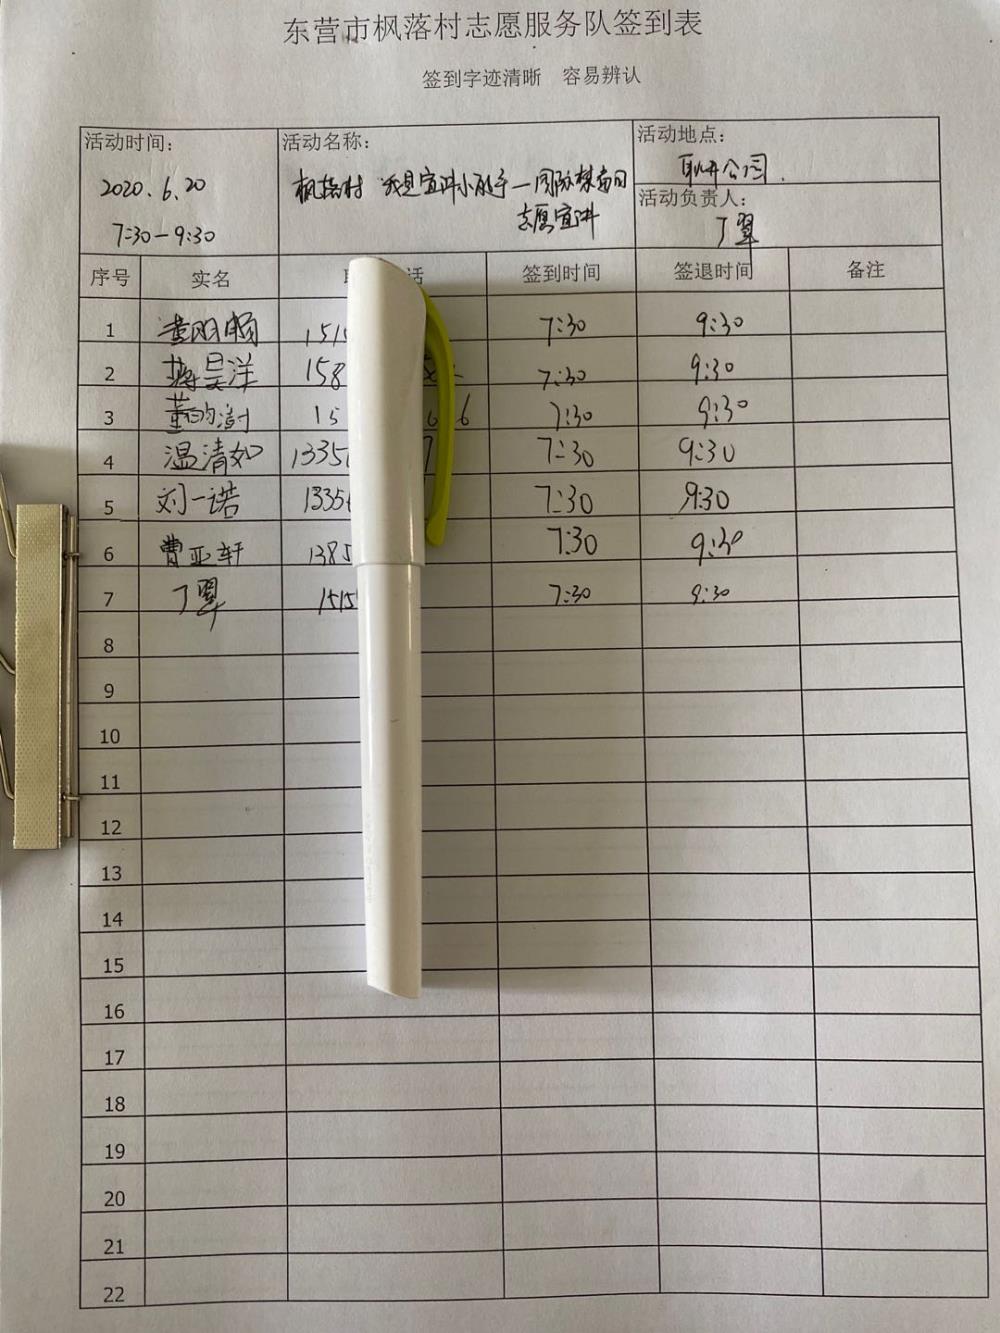 东营市枫落村志愿服务队签到表
签到字迹清晰 容易辨认
活动时间：
2020.6.20
7:30-9:30
活动名称：
枫落村 我是宣讲小能手—国际禁毒日
志愿宣讲
活动地点：
公园.
活动负责人：
丁翠
序号 实名 话 签到时间 签退时间 备注
1 151 7:30 9:30
2 蒋昊洋 158 7:30 9:30
3 董 15 6 6 7:30 9:30
4 温清如 1335 7 7:30 9:30
5 刘一诺 1335 7:30 9:30
6 曹亚轩 1385 7:30 9:30
7 丁翠 1515 7:30 9:30
8
9
10
11
12
13
14
15
16
17
18
19
20
21
22